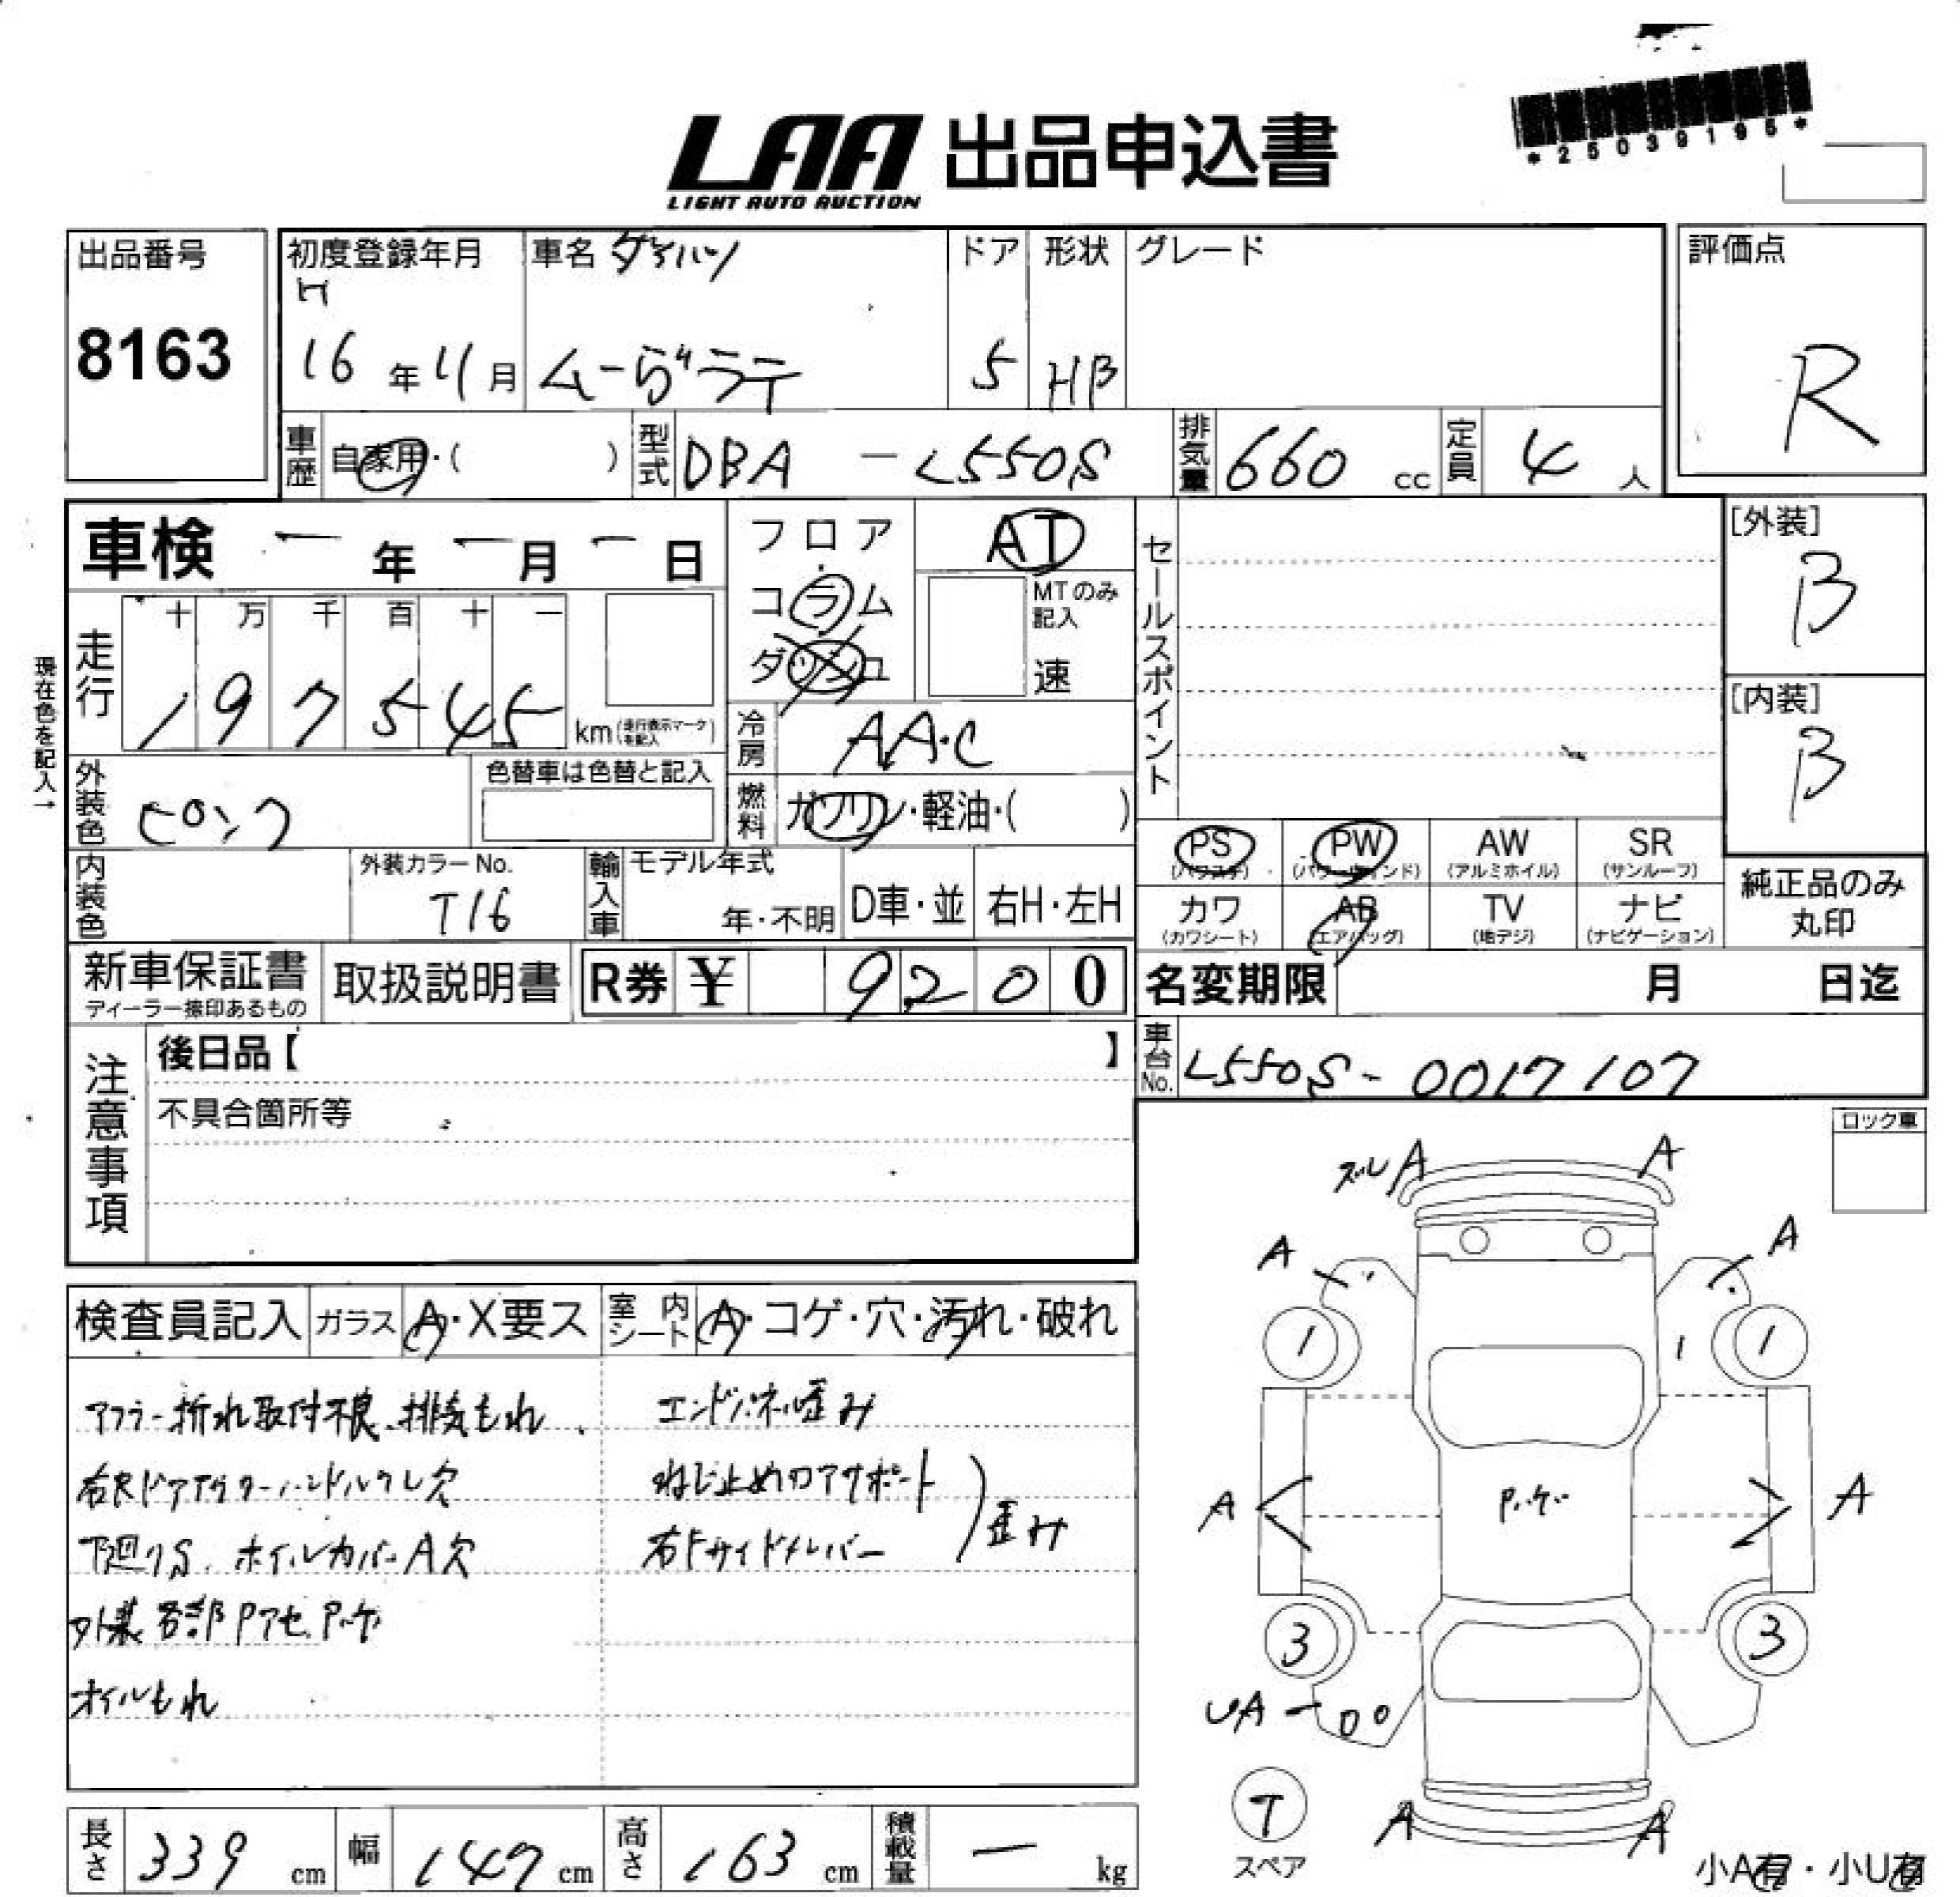 *25039195*
LAA 出品申込書
LIGHT AUTO AUCTION
出品番号
8163
初度登録年月
H
16 年 11 月
車名 ダイハツ
ムーヴラテ
ドア
5
形状
HB
グレード
評価点
R
車歴 自家用・( )
型式 DBA - L550S
排気量 660 cc
定員 4 人
車検 ー 年 ー 月 ー 日
フロア
コラム
ダッシュ
AT
MTのみ
記入
速
セールスポイント
[外装]
B
[内装]
B
現在色を記入→
走行
十 万 千 百 十 一
1 9 7 5 4 5
km(走行表示マークを記入)
冷房 AA.C
燃料 ガソリン・軽油・( )
外装色 ピンク
色替車は色替と記入
内装色
外装カラーNo.
T16
輸入車
モデル年式
年・不明
D車・並
右H・左H
PS
(パワステ)
PW
(パワーウィンド)
AW
(アルミホイル)
SR
(サンルーフ)
カワ
(カワシート)
AB
(エアバッグ)
TV
(地デジ)
ナビ
(ナビゲーション)
純正品のみ
丸印
新車保証書
ディーラー捺印あるもの
取扱説明書
R券 ¥ 9200
名変期限 月 日迄
車台No. L550S-0017107
注意事項
後日品【 】
不具合箇所等
ロック車
検査員記入
ガラス A・X要ス
室内シート A・コゲ・穴・汚れ・破れ
マフラー折れ取付不良、排気もれ
エンドパネル歪み
ねじ止めコアサポート
下廻りS. ホイルカバーA欠
外装各部Pアセ.Pハゲ
オイルもれ
歪み
ズレ A
A
A
A
1
1
A
A
Pハゲ
3
3
UA
T
スペア
A
A
小A有・小U有
長さ 339 cm
幅 147 cm
高さ 163 cm
積載量 ー kg